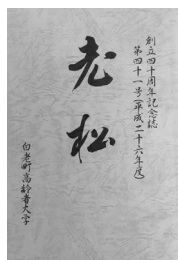 創立四十周年記念誌
第四十一号(平成二十六年度)
老松
白老町高齢者大学